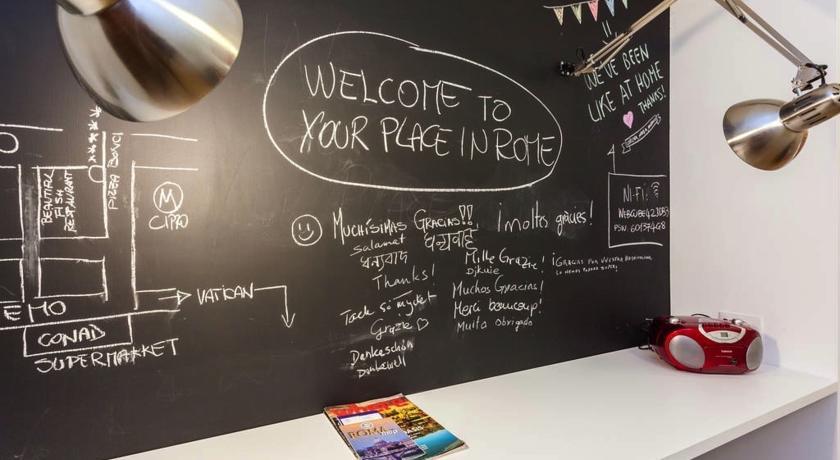 WELCOME TO
YOUR PLACE IN ROME
WE'VE BEEN
LIKE AT HOME
THANKS!
WI-FI:
PIZZA BONCI
BEAUTIFUL
FISH
RESTAURANT
M
CIPRO
VATICAN
EMO
CONAD
SUPERMARKET
MUCHÍSIMAS GRACIAS!!
¡moltes gràcies!
Salamat
धन्यवाद
धन्यवाद
Thanks!
Tack så mycket
Grazie
Dankeschön
Mille Grazie!
Muchas Gracias!
Merci beaucoup!
Muito obrigado
¡GRACIAS POR VUESTRA HOSPITALIDAD,
ROMA